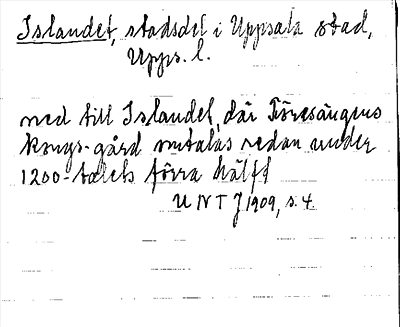 Islandet, stadsdel i Uppsala stad,
Upps. l.
ned till Islandet, där Föresängens
kongs-gård omtalas redan under
1200-talets förra hälft
UNT J 1909, s. 4.